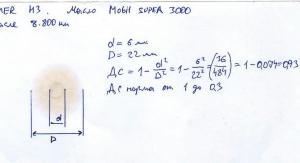 MER H3. Масло Mobil SUPER 3000
после 8.800 км
d = 6 мм
D = 22 мм
ДС = 1 - d²/D² = 1 - 6²/22² = (36/484) = 1 - 0,074 = 0,93
ДС норма от 1 до 0,3
d
D